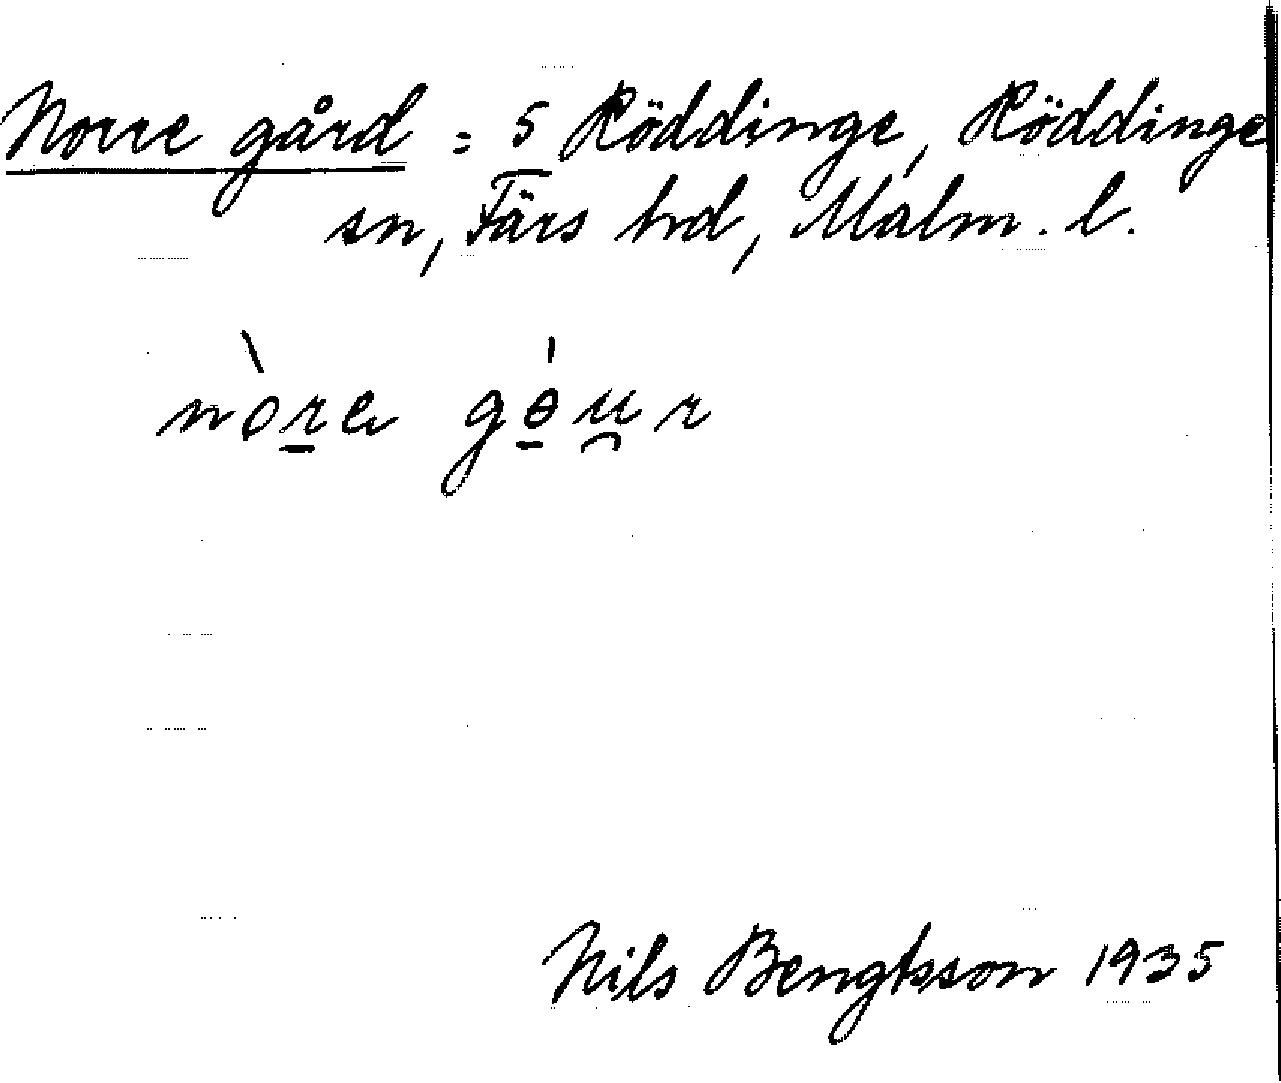 Norre gård = 5 Röddinge, Röddinge
sn, Färs hd, Malm. l.
nòre gɵ́u̯r
Nils Bengtsson 1935